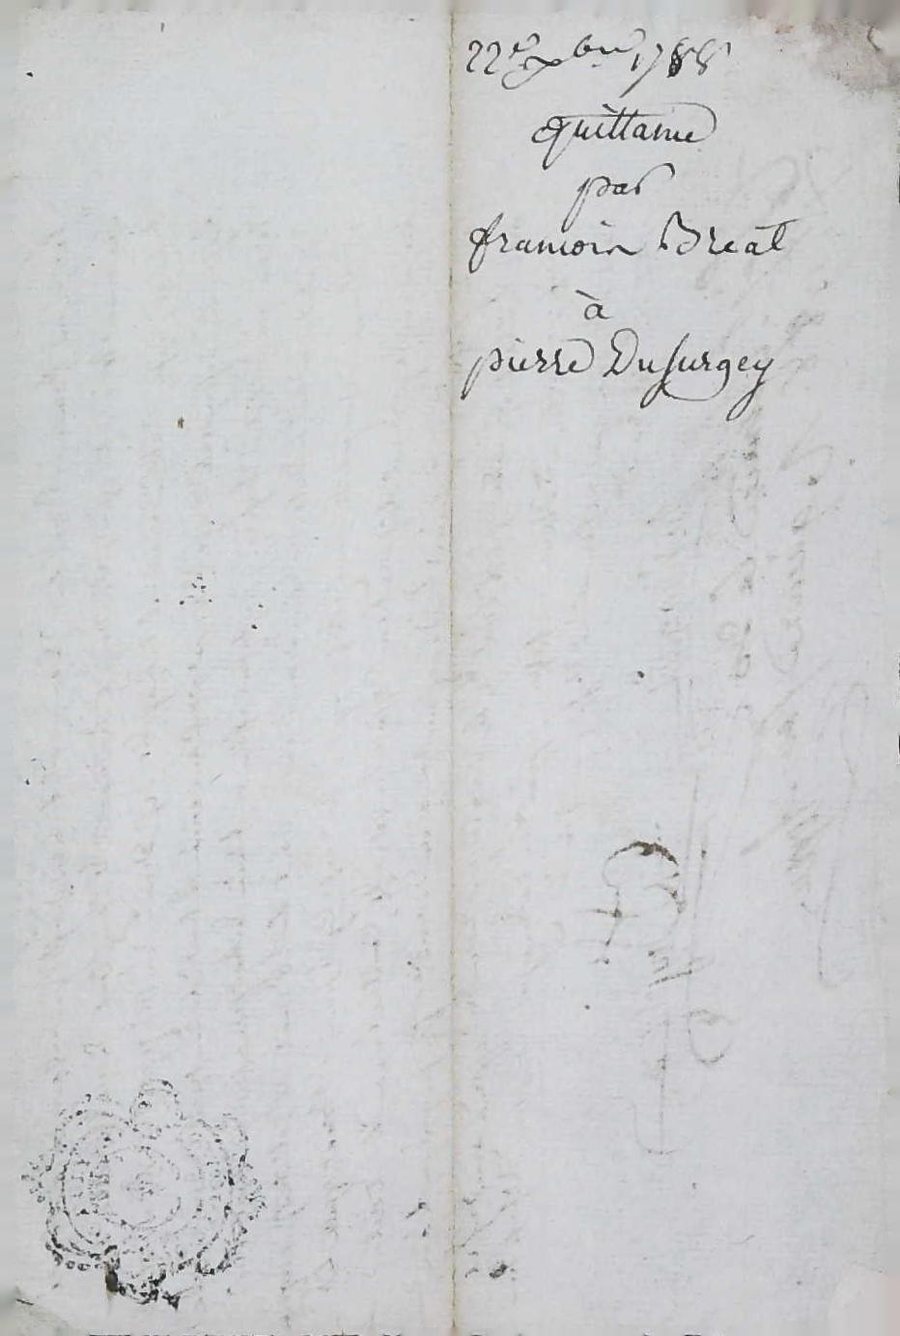 22e xbre 1788
quittance
par
francois Breat
à
pierre Dusurgey